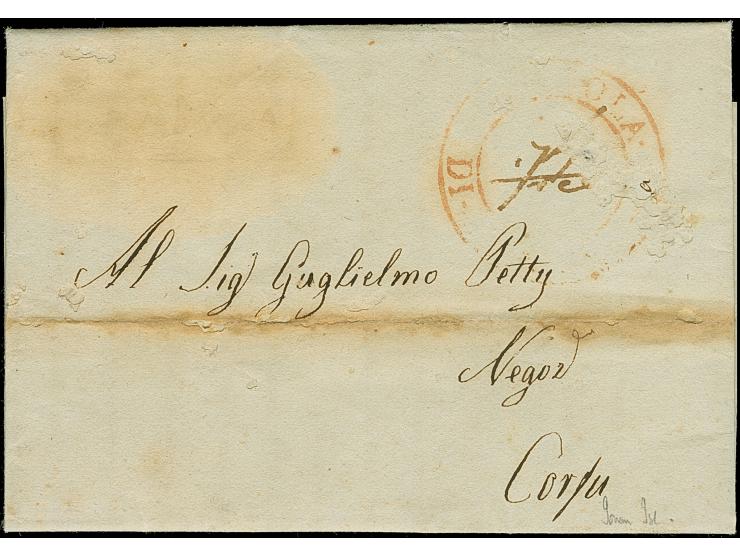 OLA.
DI
Al Sigr Guglielmo Petty
Negozt
Corfu
Ionian Isl.